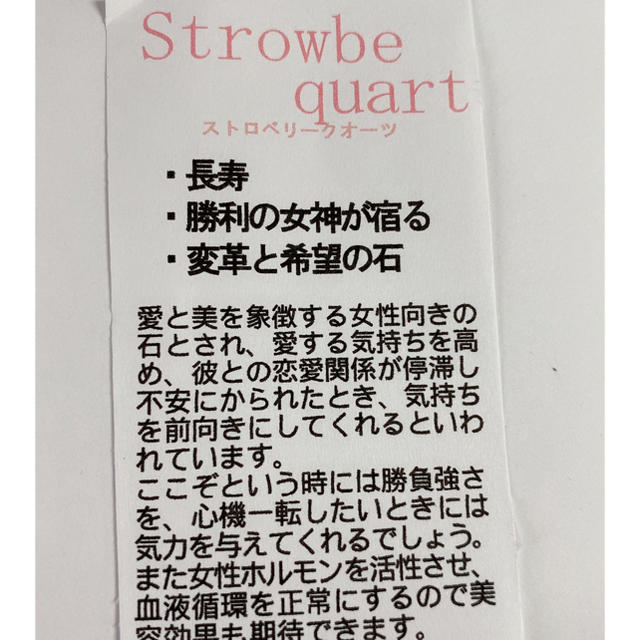 Strowbe
quart
ストロベリークオーツ
・長寿
・勝利の女神が宿る
・変革と希望の石
愛と美を象徴する女性向きの
石とされ、愛する気持ちを高
め、彼との恋愛関係が停滞し
不安にかられたとき、気持ち
を前向きにしてくれるといわ
れています。
ここぞという時には勝負強さ
を、心機一転したいときには
気力を与えてくれるでしょう。
また女性ホルモンを活性させ、
血液循環を正常にするので美
容効果も期待できます。